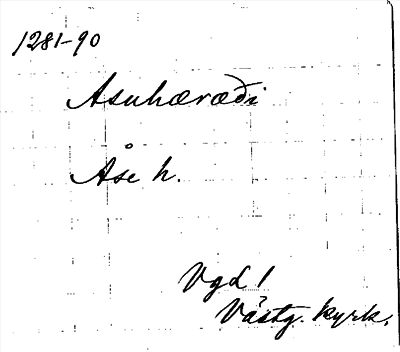 1281-90
Asuhæræði
Åse h.
Vgd 1
Västg. kyrk.